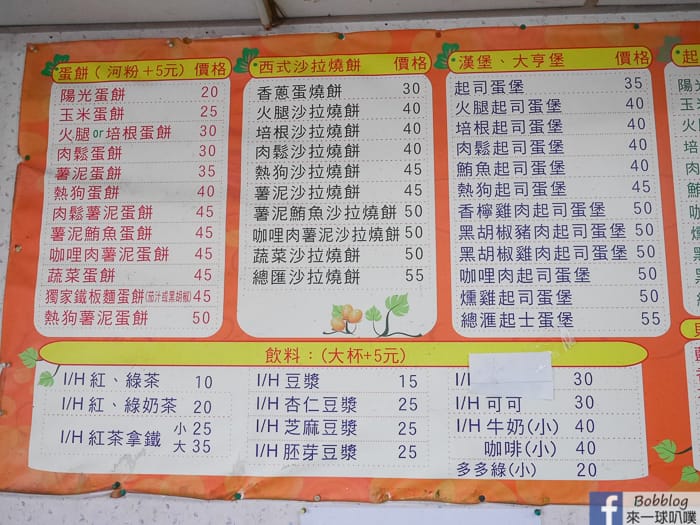 蛋餅(河粉+5元) 價格
陽光蛋餅 20
玉米蛋餅 25
火腿or培根蛋餅 30
肉鬆蛋餅 30
薯泥蛋餅 35
熱狗蛋餅 40
肉鬆薯泥蛋餅 45
薯泥鮪魚蛋餅 45
咖哩肉薯泥蛋餅 45
蔬菜蛋餅 45
獨家鐵板麵蛋餅(茄汁或黑胡椒) 45
熱狗薯泥蛋餅 50
西式沙拉燒餅 價格
香蔥蛋燒餅 30
火腿沙拉燒餅 40
培根沙拉燒餅 40
肉鬆沙拉燒餅 40
熱狗沙拉燒餅 45
薯泥沙拉燒餅 45
薯泥鮪魚沙拉燒餅 50
咖哩肉薯泥沙拉燒餅 50
蔬菜沙拉燒餅 50
總匯沙拉燒餅 55
漢堡、大亨堡 價格
起司蛋堡 35
火腿起司蛋堡 40
培根起司蛋堡 40
肉鬆起司蛋堡 40
鮪魚起司蛋堡 40
熱狗起司蛋堡 45
香檸雞肉起司蛋堡 50
黑胡椒豬肉起司蛋堡 50
黑胡椒雞肉起司蛋堡 50
咖哩肉起司蛋堡 50
燻雞起司蛋堡 50
總滙起士蛋堡 55
起
陽光
玉米
火腿
培
肉
鮪
薯
咖
燻
飲料:(大杯+5元)
I/H 紅、綠茶 10
I/H 紅、綠奶茶 20
I/H 紅茶拿鐵 小 25
大 35
I/H 豆漿 15
I/H 杏仁豆漿 25
I/H 芝麻豆漿 25
I/H 胚芽豆漿 25
30
I/H 可可 30
I/H 牛奶(小) 40
咖啡(小) 40
多多綠(小) 20
Bobblog
來一球叭噗